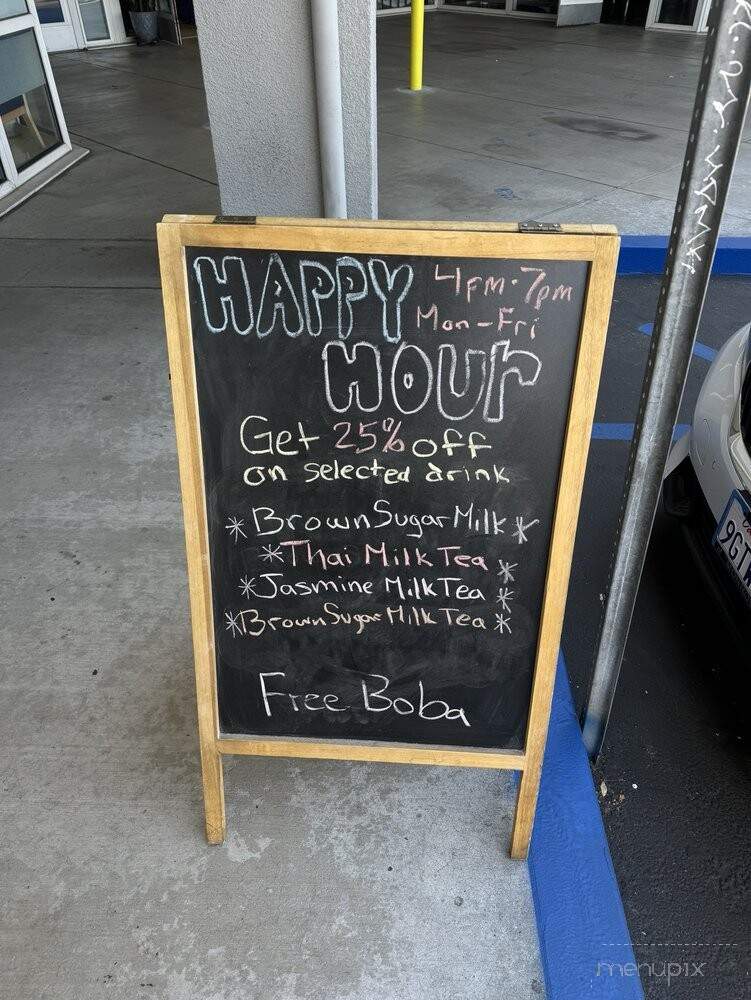 HAPPY 4pm-7pm
Mon-Fri
HOUr
Get 25% off
on selected drink
*Brown Sugar Milk*
*Thai Milk Tea*
*Jasmine Milk Tea*
*Brown Sugar Milk Tea*
Free Boba
menupix